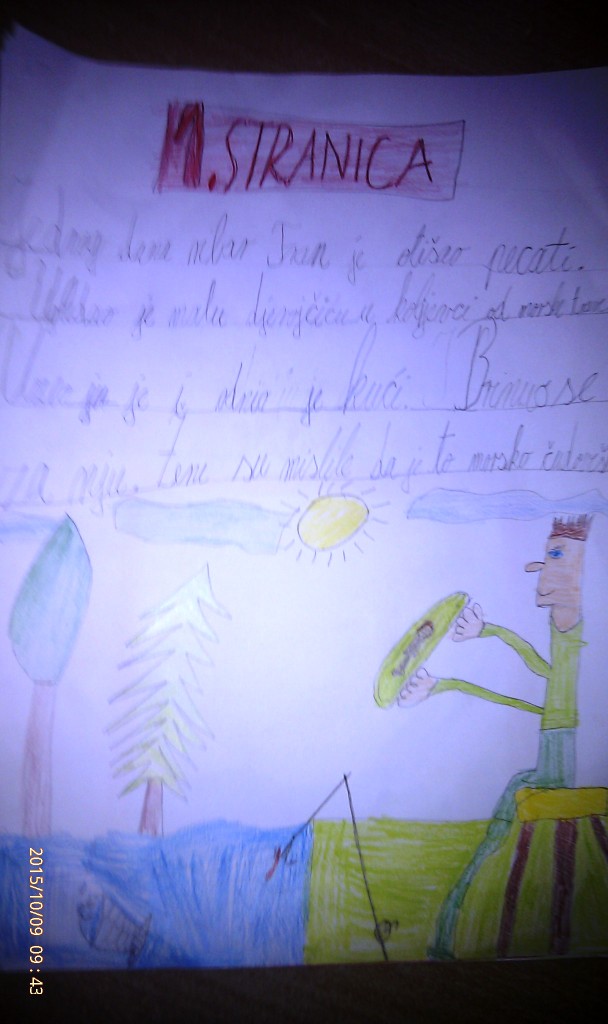 1. STRANICA
Jednog dana ribar Iren je otišao pecati.
je malu djevojčicu u koljevci od morske trave
Uzeo ju je i je kući. Brinuo se
za nju. su mislile da je to morsko čudovište
2015/10/09 09:43